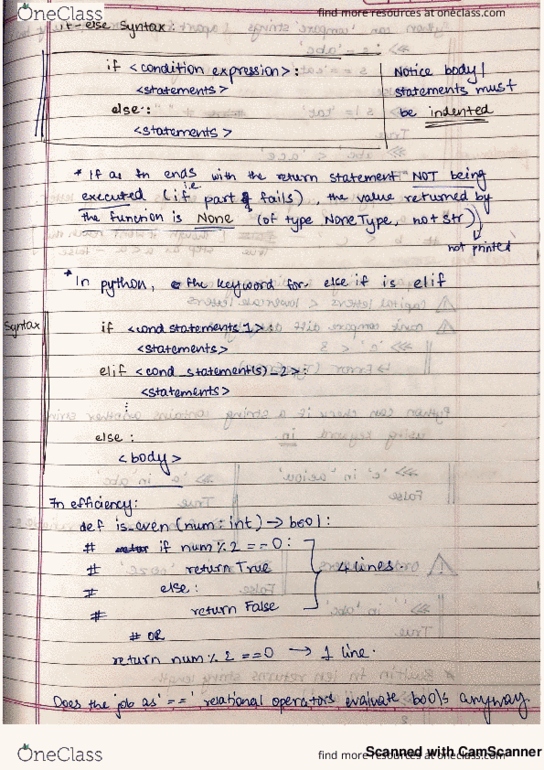 OneClass
find more resources at oneclass.com
if-else Syntax:
if <condition expression>:
<statements>
else:
<statements>
Notice body/
statements must
be indented
* If as fn ends with the return statement NOT being
executed (i.e. if part fails), the value returned by
the function is None (of type NoneType, not str)
not printed
* In python, the keyword for else if is elif
Syntax
if <cond statements 1>:
<statements>
elif <cond_statement(s)_2>:
<statements>
⋮
else:
<body>
In efficiency:
def is_even(num: int) -> bool:
# if num % 2 == 0:
# return True
# else:
# return False
4 lines.
# OR
return num % 2 == 0 → 1 line.
Does the job as '==' relational operators evaluate bools anyway.
OneClass
find more resources at oneclass.com
Scanned with CamScanner